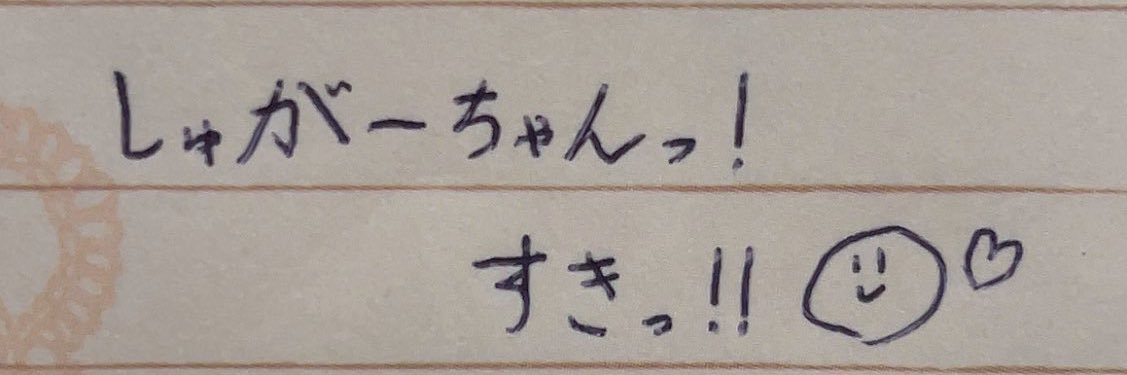 しゅがーちゃんっ!
すきっ!!